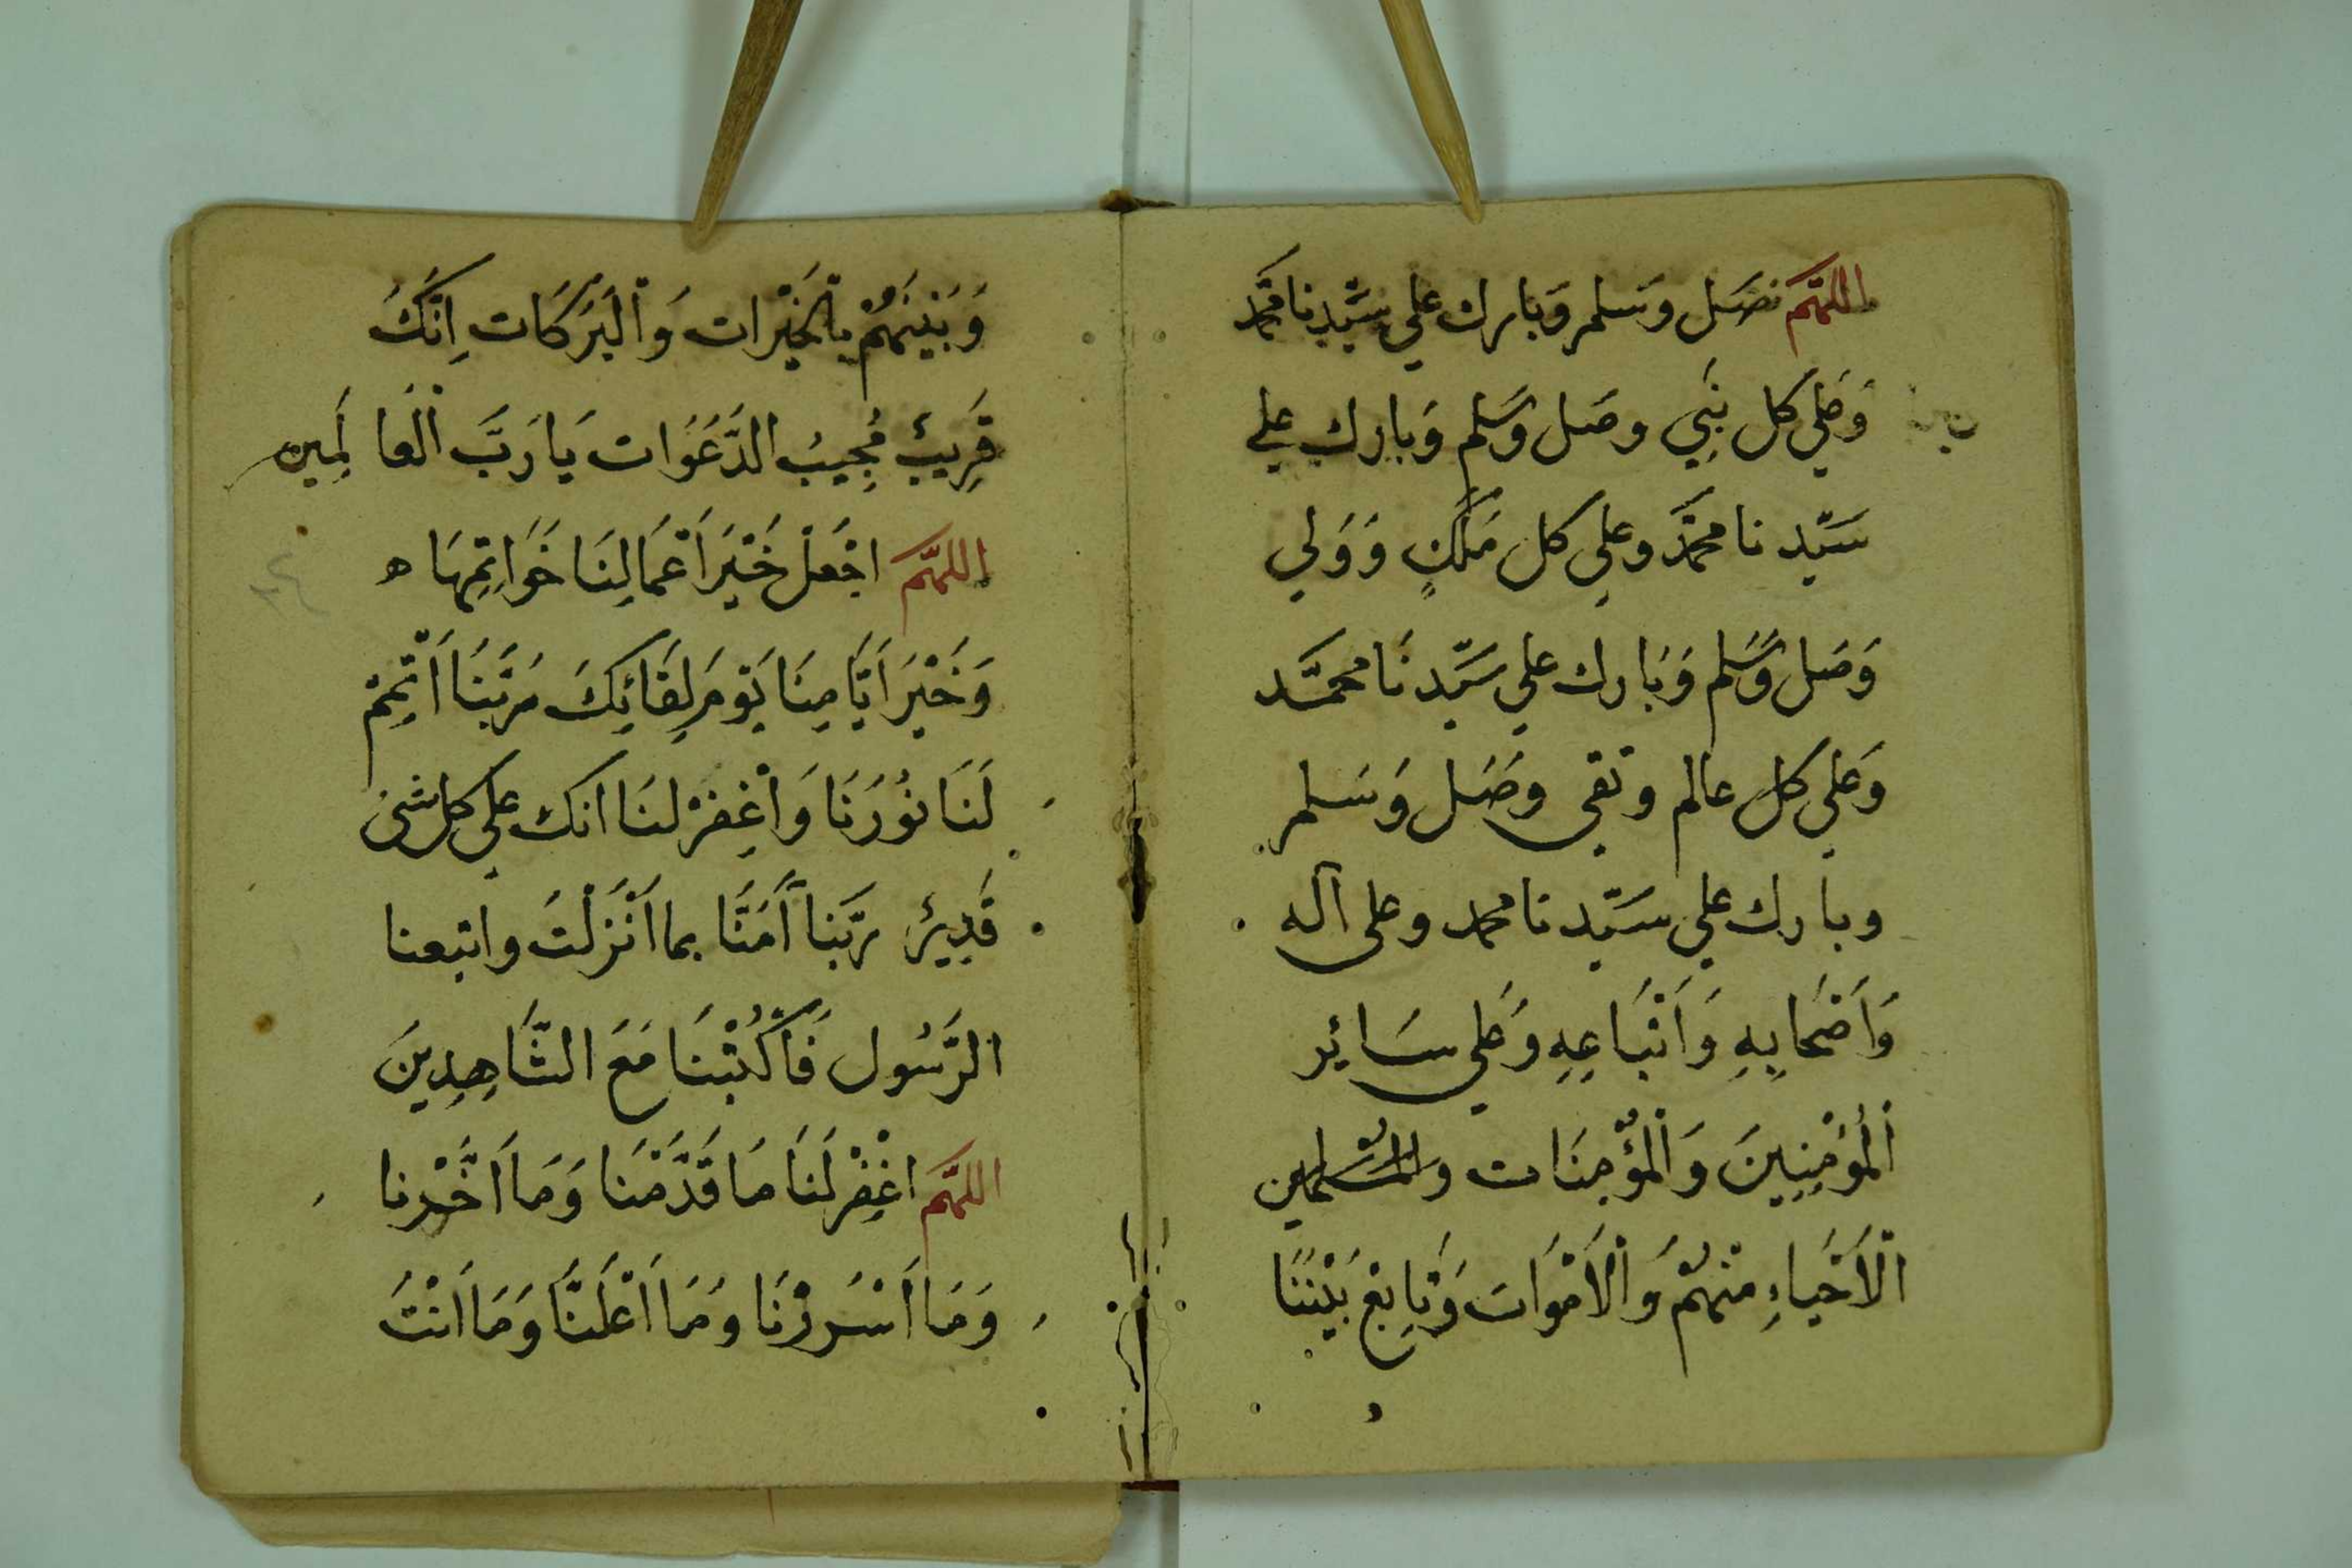 اللهم فصل وسلم وبارك علي سيدنا محمد
وَعَلي كل نَبِي وصَل وَسَلم وَبارك علي
سَيِّدنا محمَّد وعلي كل مَلَكٍ وَوَلي
وَصَل وَسَلم وَبَارك علي سَيِّدنَا محمَّد
وَعَلي كل عالم وتقى وصَل وَسَلم
وبارك علي سَيِّدنا محمد وعلى آله
وَاَصْحَابِهِ وَاَتْبَاعِهِ وَعَلي سَائِر
اَلْمُؤْمِنِينَ وَاَلْمُؤْمِنَات والمسْلمين
اَلْاَحْيَاءِ مِنْهُمْ وَاَلْاَمْوَات وَتَابِعْ بَيْنَنَا
وَبَيْنَهُمْ بِالْخَيْرَات وَالْبَرَكَات اِنَّكَ
قَرِيبٌ مُجِيبُ الدَّعَوَات يَا رَبَّ الْعَالَمِين
اللهم اجْعَلْ خَيْرَ اَعْمَالِنَا خَوَاتِمَهَا ه
وَخَيْرَ اَيَّامِنَا يَوْمَ لِقَائِكَ رَبَّنَا اَتْمِمْ
لَنَا نُورَنَا وَاغْفِرْ لنَا انك علي كل شئ
قَدِيرٌ رَبّنَا آمَنَّا بما اَنْزَلْتَ واتبعنا
الرَّسُول فَاكْتُبْنَا مَعَ الشَّاهِدِينَ
اللهم اغْفِرْ لَنَا مَا قَدَّمْنَا وَمَا اَخَّرْنا
وَمَا اَسْرَرْنَا وَمَا اَعْلَنَّا وَمَا اَنْتَ